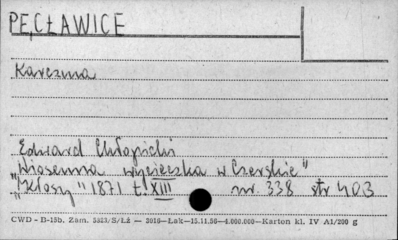 PĘCŁAWICE
Karczma
Edward Chłopicki
"Wiosenna wycieczka w Czerskie"
"Kłosy" 1871 t. XIII nr. 338 str 403
CWD - D-15b. Zam. 5823/S/Lż — 2010—Lak—15.11.56—6.000.000—Karton kl. IV A1/200 g